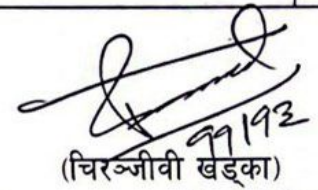 ११।१२
(चिरञ्जीवी खड्का)